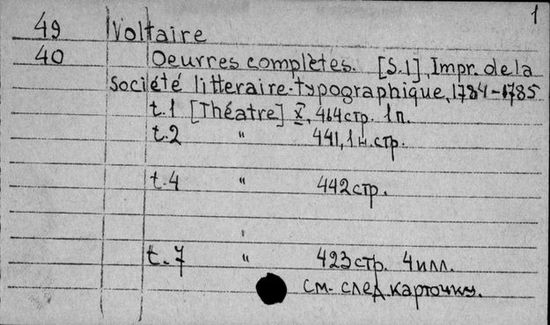 1
49 Voltaire
40 Oeuvres complètes. [S.l], Impr. de la
Société litteraire-typographique, 1784-1785
t.1 [Théatre] X, 464 стр. 1 п.
t.2 " 441, 1 н. стр.
t.4 " 442 стр.
t.7 " 423 стр. 4 илл.
см. след. карточку.